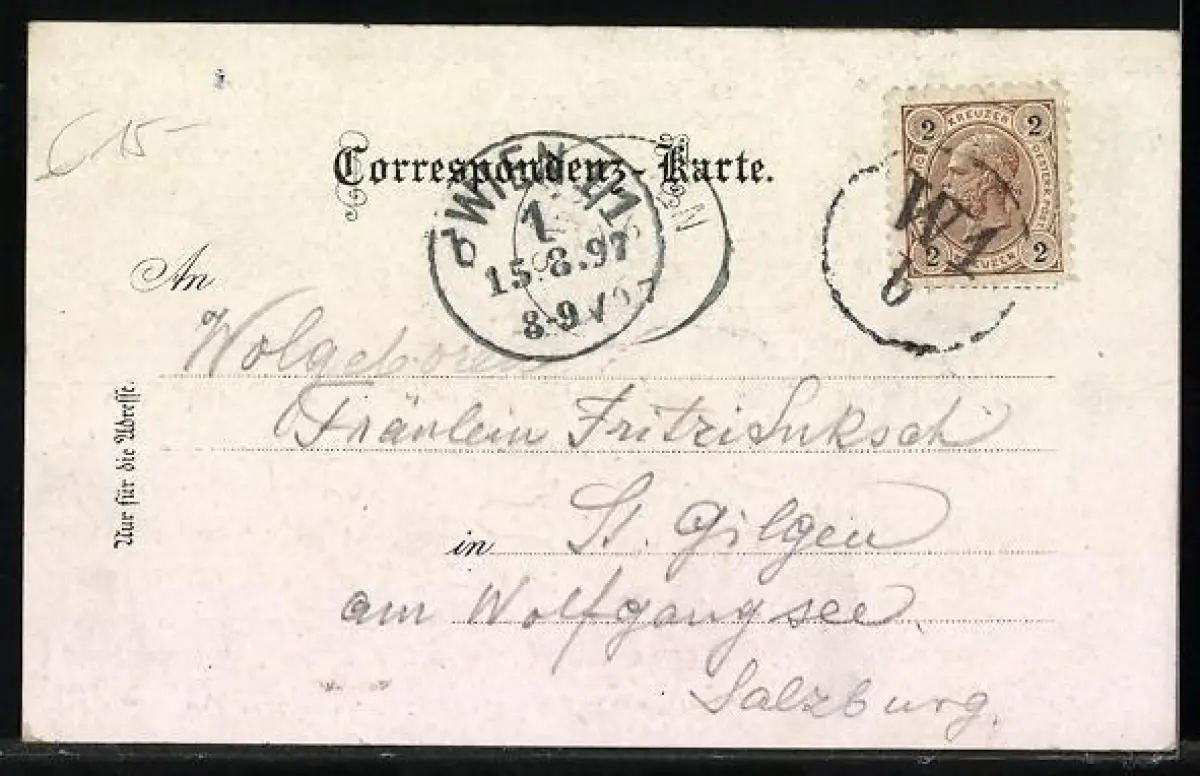 15-
Correspondenz-Karte.
2 KREUZER 2
2 KREUZER 2
WIEN 1/1
1
15.8.97
8-9 V
W 1
b
An
Wolgeboren
Fräulein Fritzi Suksch
in St. Gilgen
am Wolfgangsee.
Salzburg.
Nur für die Adresse.